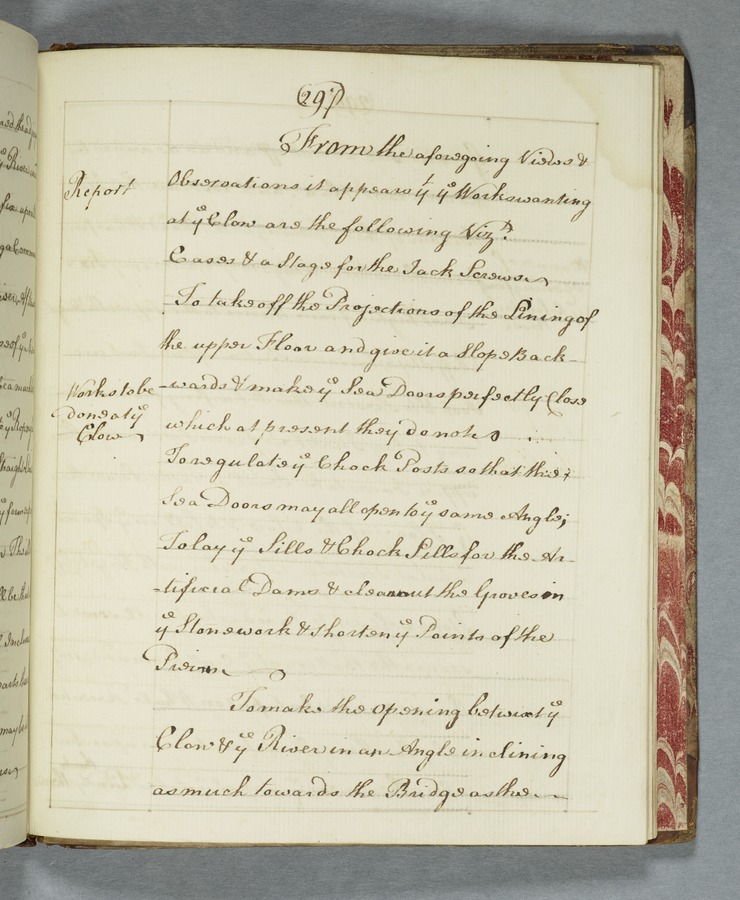 (297)
From the aforegoing Views &
Report
Observations it appears yt ye Works wanting
at ye Clow are the following Vizt.
Cases & a Stage for the Jack Screws
To take off the Projections of the Lining of
the upper Floor and give it a Slope Back-
Works to be
done at ye
Clow
-wards & make ye Sea Doors perfectly Close
which at present they do not
To regulate ye Chock Posts so that the
Sea Doors may all open to ye same Angle;
To lay ye Sills & Chock Sills for the Ar-
-tificial Dams & clear out the Groves in
ye Stonework & shorten ye Points of the
Piers
To make the opening betwixt ye
Clow & ye River in an Angle inclining
as much towards the Bridge as the